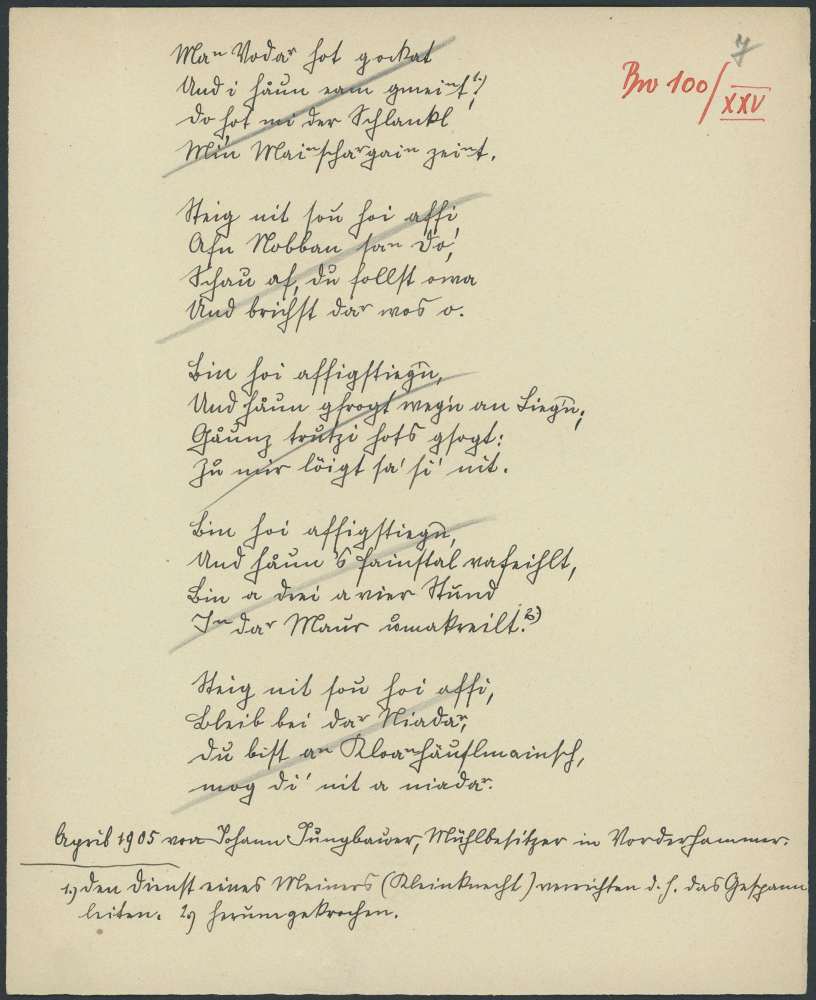 7
Bw 100/XXV
Maⁿ Vodaʳ hot gockat
Und i håun eam gmeiⁿt!¹⁾
Do hot mi der Schlankl
Min Maiⁿschaʳgaiⁿ zeiⁿt.
Steig nit sou hoi affi
Afn Nobban saⁿ Do,
Schau af, du follst owa
Und brichst daʳ wos o.
Bin hoi affigstiegn,
Und håun gfrogt wegn an Liegn;
Gåunz trutzi hots gsogt:
Zu mir löigt sa' si' nit.
Bin hoi affigstiegn,
Und håun 's Fainstal vafeihlt,
Bin a drei a vier Stund
Iⁿ daʳ Maur umakreilt.²⁾
Steig nit sou hoi affi,
Bleib bei daʳ Niadaʳ,
Du bist aⁿ Kloaⁿhäuslmainsch,
mog di' nit a niadaʳ.
April 1905 von Johann Jungbauer, Mühlbesitzer in Vorderhammer.
1) Den Dienst eines Meiners (Kleinknecht) verrichten d. h. das Gespann
leiten. 2) herumgekrochen.